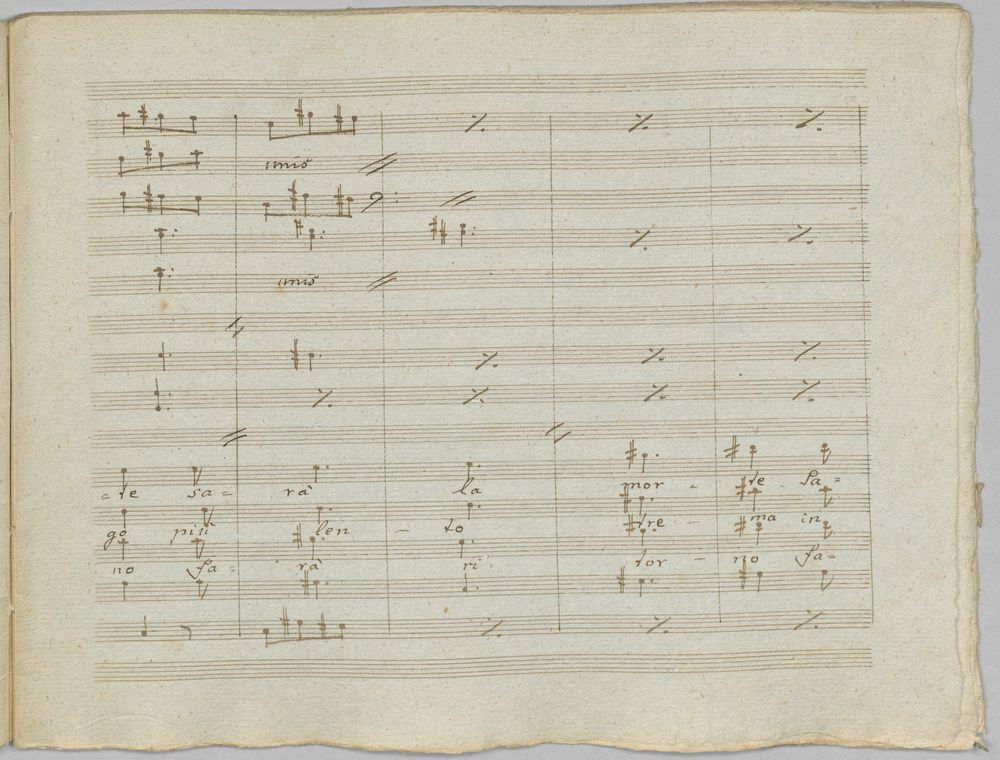 unis
unis
-te sa= rà la mor - te sa=
go più len - to tre - ma in
no sa= rà ri= tor - no sa=